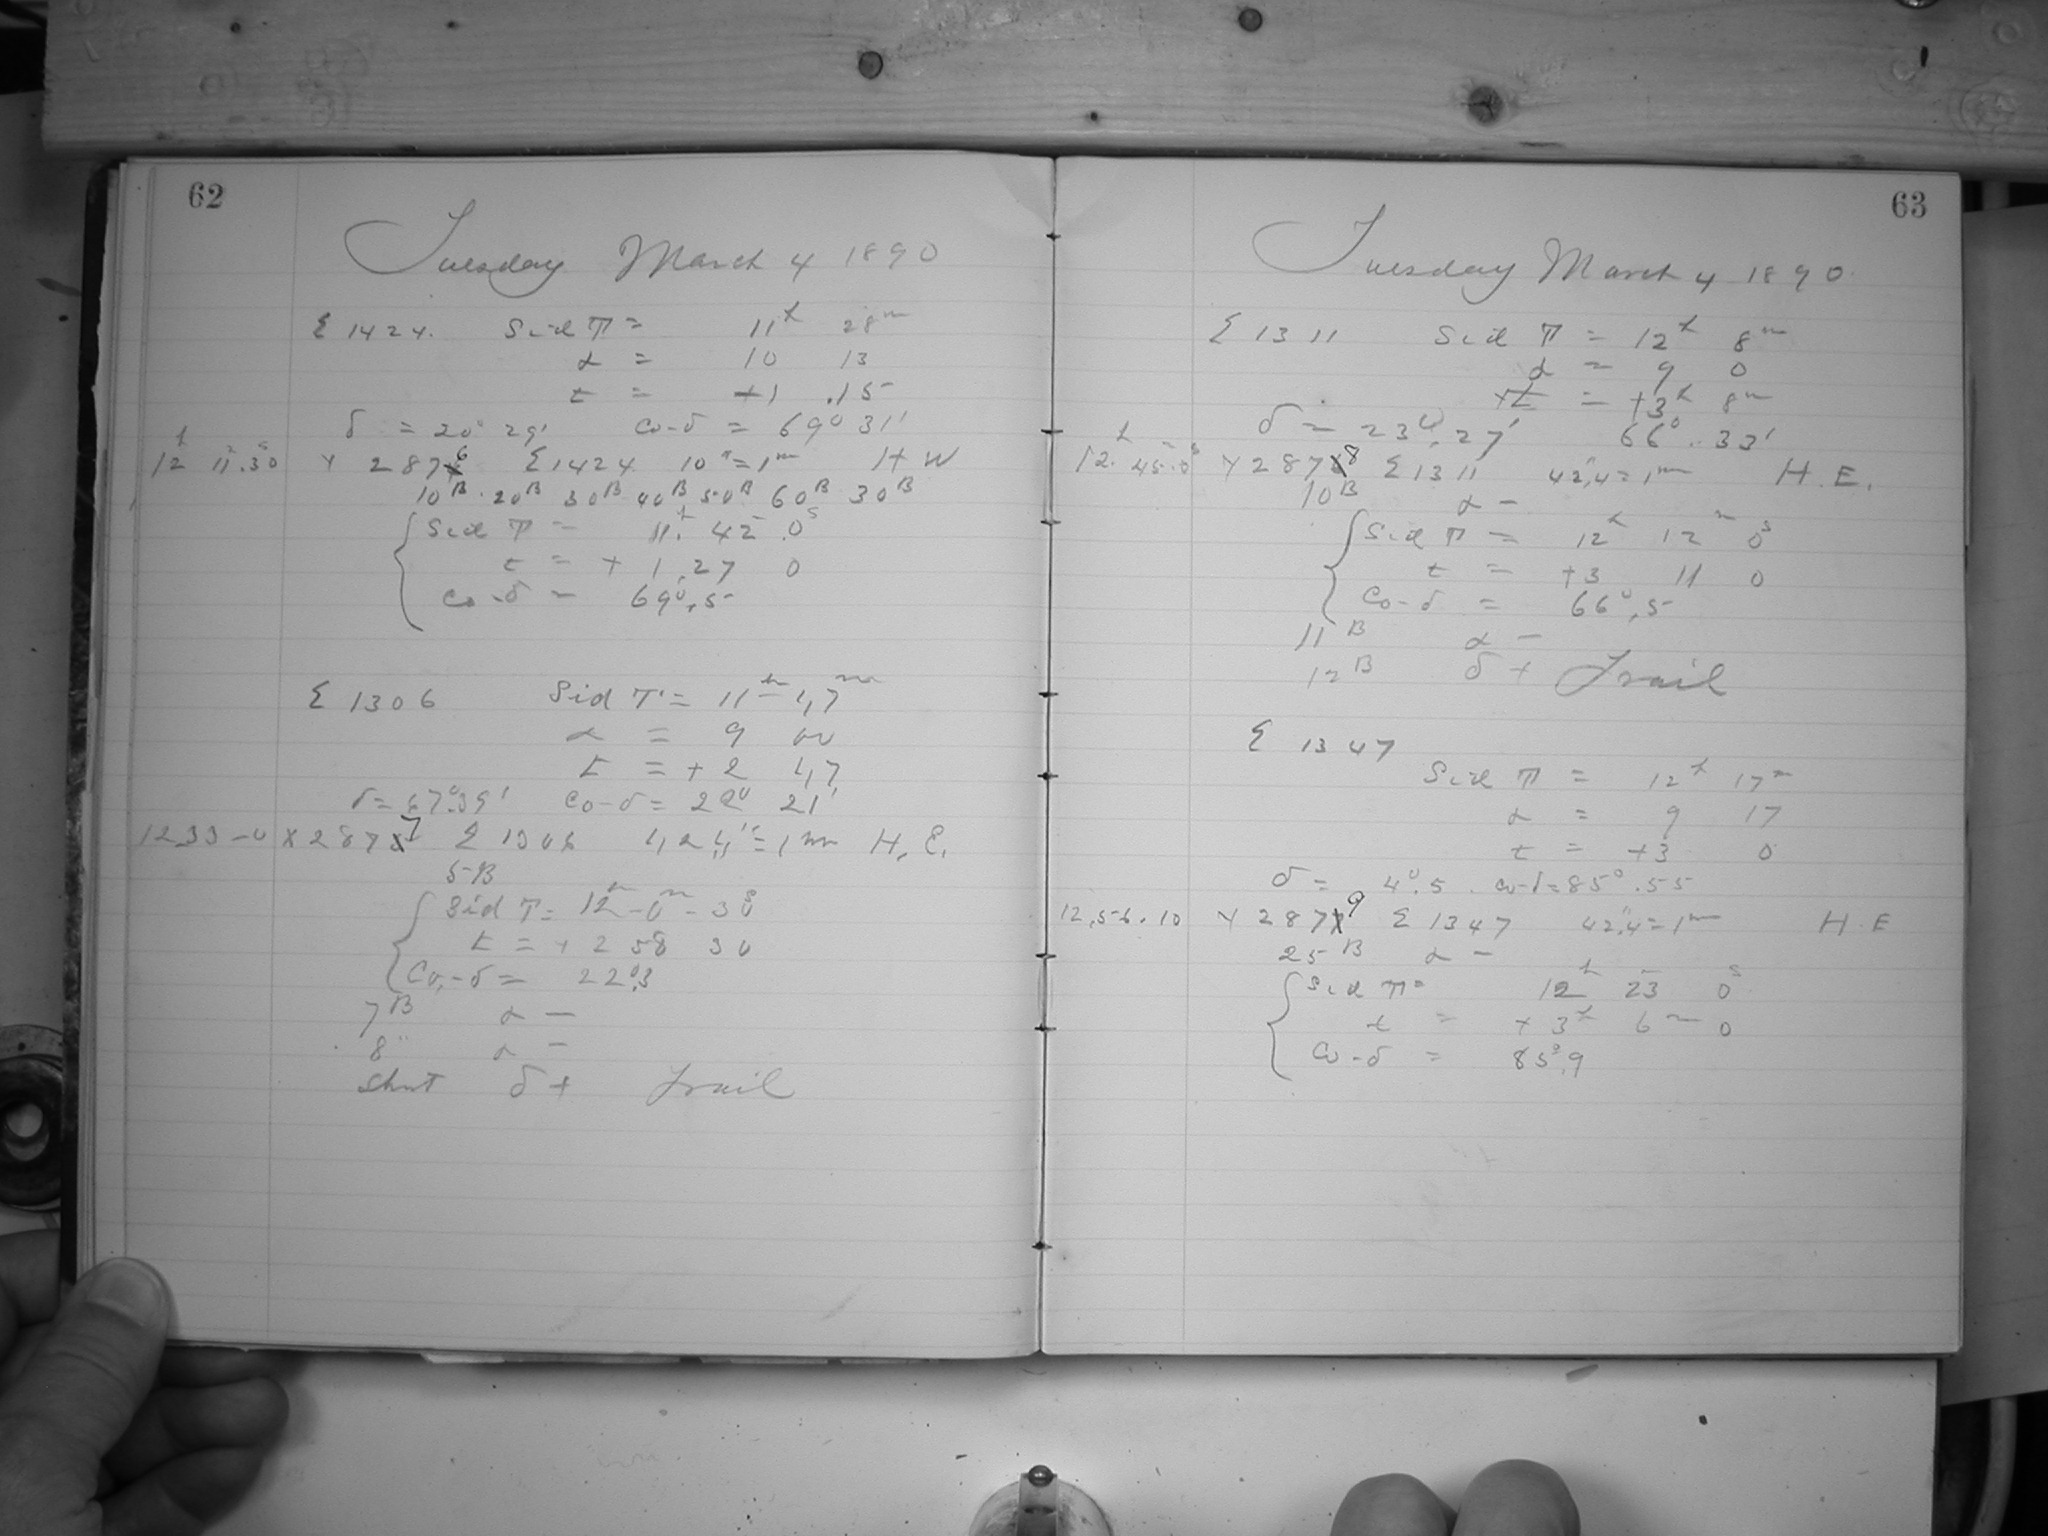 62
Tuesday March 4 1890
Σ 1424. Sid T = 11h 28m
α = 10 13
t = +1 .15
δ = 20° 29' co-δ = 69° 31'
12h 11m.30s Y 2876 Σ1424 10" = 1m H W
10B. 20B 30B 40B 50B 60B 30B
Sid T = 11h. 42m .0s
t = + 1.27 0
co-δ = 69°.5
Σ 1306 Sid T = 11h 47m
α = 9 00
t = + 2 47
δ = 67°.39' co-δ = 22° 21'
12 33-0 X 2877 Σ 1306 42,4" = 1m H. E.
5B
Sid T = 12h-0m-30s
t = + 2 58 30
Co.-δ = 22°.3
7B α -
8" α -
Shut δ + Trail
63
Tuesday March 4 1890
Σ 1311 Sid T = 12h 8m
α = 9 0
t = +3h 8m
δ = 23°.27' 66°. 33'
12h. 45m.0s Y 2878 Σ 1311 42",4 = 1m H. E.
10B α -
Sid T = 12h 12m 0s
t = +3 11 0
Co-δ = 66°.5
11B α -
12B δ + Trail
Σ 1347
Sid T = 12h 17m
α = 9 17
t = +3 0
δ = 4°.5. co-δ = 85°.55
12.56.10 Y 2879 Σ 1347 42",4 = 1m H. E
25B α -
Sid T = 12h 23m 0s
t = + 3h 6m 0
Co-δ = 85°.9